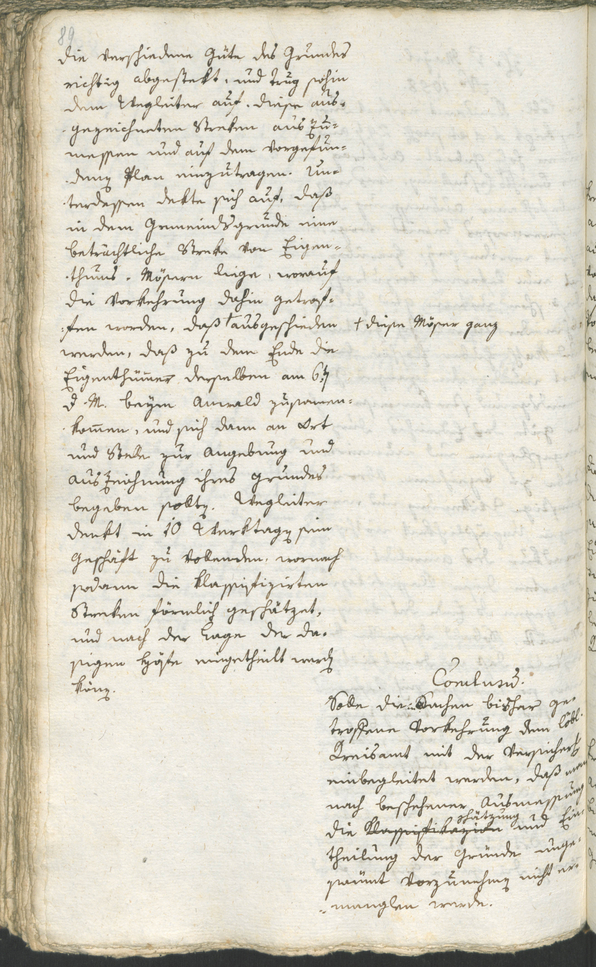 89
die verschiedene Güte des Grundes
richtig abgestekt, und trug sohin
dem Wegleiter auf, diese aus-
gezeichneten Streken auszu-
messen und auf dem vorgefun-
denen Plan einzutragen. Un-
terdessen dekte sich auf, daß
in dem Gemeindsgrunde eine
beträchtliche Streke von Eigen-
thums-Mösern liege, worauf
die Vorkehrung dahin getrof-
fen worden, daß † ausgeschieden † diese Möser ganz
werden, daß zu dem Ende die
Eigenthümer derselben am 6ten
d. M. beym Anwald zusamen-
komen, und sich dann an Ort
und Stelle zur Angebung und
Auszeichnung ihres Grundes
begeben sollen. Wegleiter
denkt in 10 Werktagen sein
Geschäft zu vollenden, wornach
sodann die klassifizirten
Streken förmlich geschätzet,
und nach der Lage der da-
sigen Höfe eingetheilt werden
könen.
Conclusum.
Solle die in Sachen bisher ge-
troffene Vorkehrung dem löbl.
Kreisamt mit der Versicherung
einbegleitet werden, daß man
nach beschehener Ausmessung
die Klassifikazion Schätzung und Ein-
theilung der Gründe unge-
säumt vorzunehmen nicht er-
manglen werde.